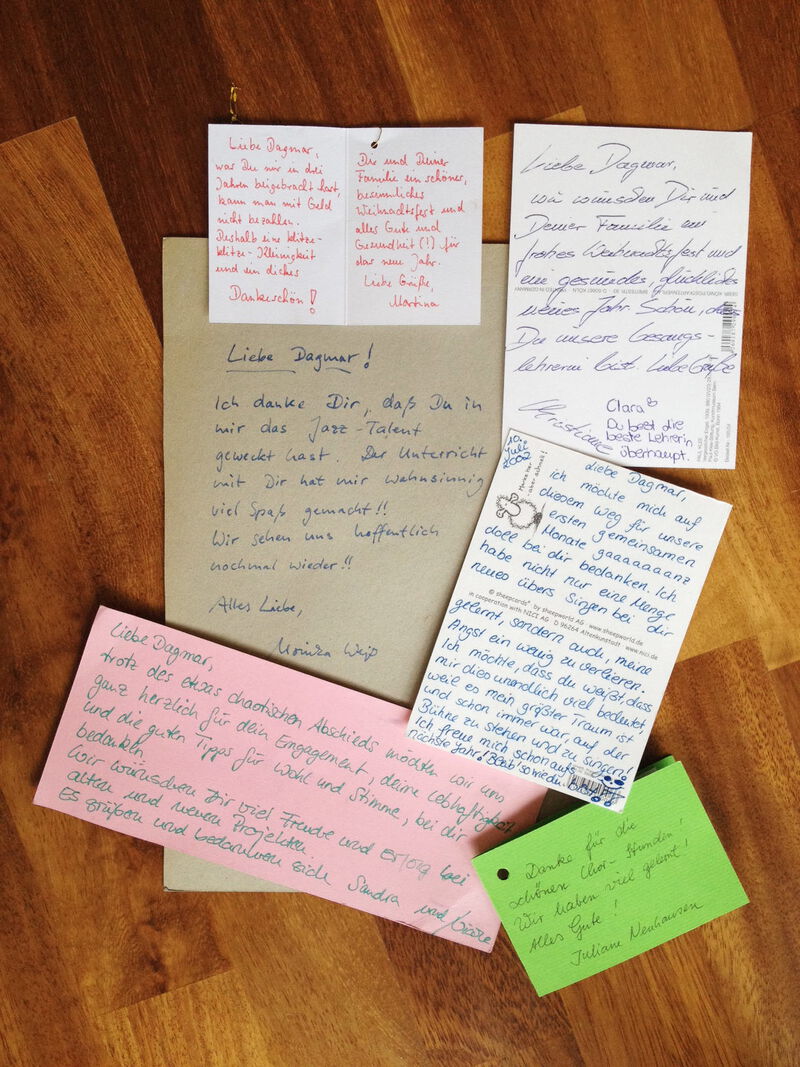 Liebe Dagmar,
was Du mir in drei
Jahren beigebracht hast,
kann man mit Geld
nicht bezahlen.
Deshalb eine klitze-
klitze-Kleinigkeit
und ein dickes
Dankeschön!
Dir und Deiner
Familie ein schönes,
besinnliches
Weihnachtsfest und
alles Gute und
Gesundheit (!) für
das neue Jahr.
Liebe Grüße,
Martina
Liebe Dagmar,
wir wünschen Dir und
Deiner Familie ein
frohes Weihnachtsfest und
ein gesundes, glückliches
neues Jahr. Schön, dass
Du unsere Gesangs-
lehrerin bist. Liebe Grüße
Christiane
Clara
Du bist die
beste Lehrerin
überhaupt.
Liebe Dagmar!
Ich danke Dir, daß Du in
mir das Jazz-Talent
geweckt hast. Der Unterricht
mit Dir hat mir wahnsinnig
viel Spaß gemacht!!
Wir sehen uns hoffentlich
nochmal wieder!!
Alles Liebe,
Monika Weiß
10.
Juli
2002
Liebe Dagmar,
ich möchte mich auf
diesem Weg für unsere
ersten gemeinsamen
Monate gaaaaaaanz
doll bei dir bedanken. Ich
habe nicht nur eine Menge
neues übers Singen bei dir
© sheepcards® by sheepworld AG www.sheepworld.de
in cooperation with NICI AG D 96264 Altenkunstadt www.nici.de
gelernt, sondern auch, meine
Angst ein wenig zu verlieren.
Ich möchte, dass du weißt, dass
mir dies unendlich viel bedeutet
weil es mein größter Traum ist
und schon immer war, auf der
Bühne zu stehen und zu singen!
Ich freue mich schon aufs
nächste Jahr!
Liebe Dagmar,
trotz des etwas chaotischen Abschieds möchten wir uns
ganz herzlich für dein Engagement, deine Lebhaftigkeit
und die guten Tipps für Wohl und Stimme, bei dir
bedanken.
Wir wünschen Dir viel Freude und Erfolg bei
alten und neuen Projekten.
Es grüßen und bedanken sich Sandra und
Danke für die
schönen Chor-Stunden!
Wir haben viel gelernt!
Alles Gute!
Juliane Neuhausen